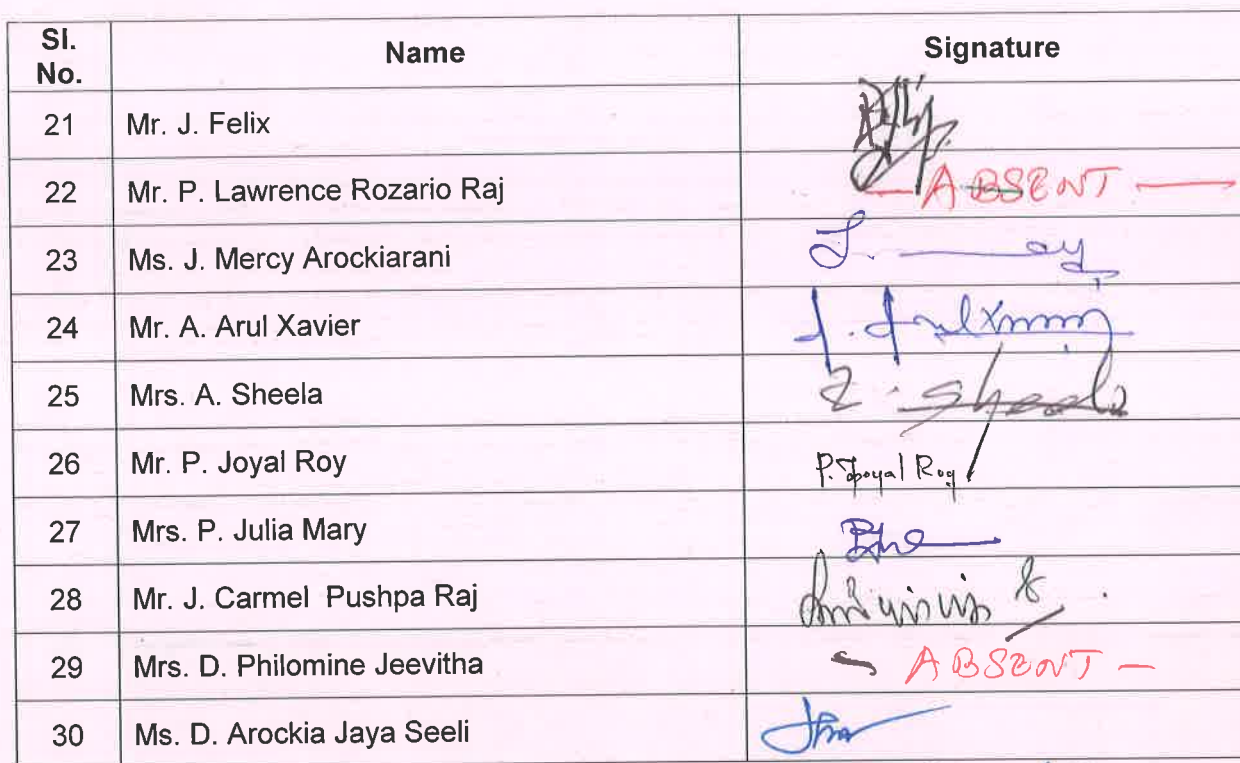 Sl. No. Name Signature
21 Mr. J. Felix
22 Mr. P. Lawrence Rozario Raj — ABSENT —
23 Ms. J. Mercy Arockiarani
24 Mr. A. Arul Xavier
25 Mrs. A. Sheela Sheela
26 Mr. P. Joyal Roy P. Joyal Roy
27 Mrs. P. Julia Mary
28 Mr. J. Carmel Pushpa Raj
29 Mrs. D. Philomine Jeevitha ABSENT —
30 Ms. D. Arockia Jaya Seeli